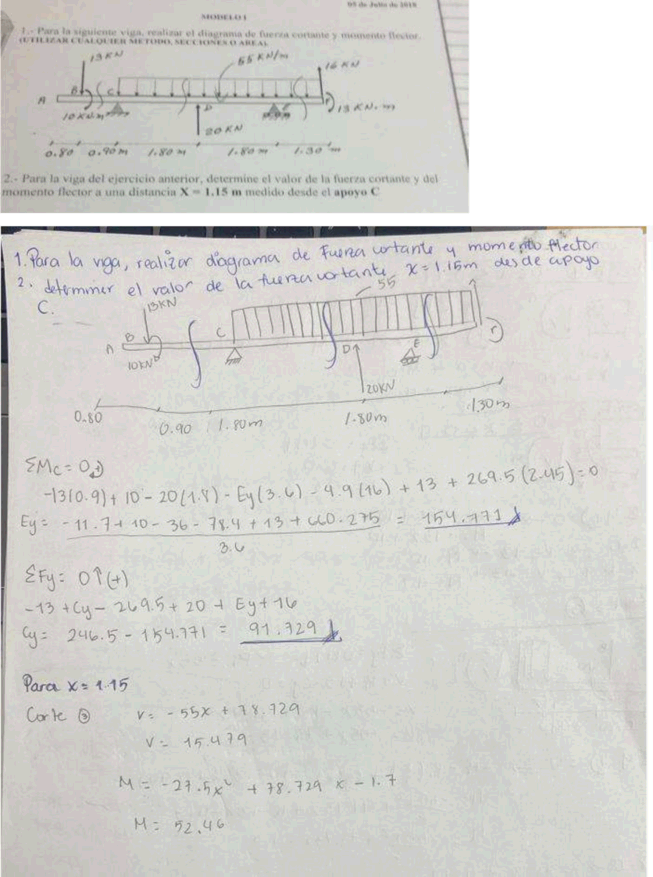 05 de Julio de 2018
MODELO 1
1.- Para la siguiente viga, realizar el diagrama de fuerza cortante y momento flector.
(UTILIZAR CUALQUIER METODO, SECCIONES O AREA).
13 KN
55 KN/m
16 KN
A B C D
10 KN.m
13 KN.m
20 KN
0.80 0.90 m 1.80 m 1.80 m 1.30 m
2.- Para la viga del ejercicio anterior, determine el valor de la fuerza cortante y del
momento flector a una distancia X = 1.15 m medido desde el apoyo C
1. Para la viga, realizar diagrama de Fuerza cortante y momento flector
2. determiner el valor de la fuerza cortante, x = 1.15m desde apoyo
C.
13KN
55
A B C D E
10KN
20KN
0.80 0.90 1.80m 1.80m 1.30m
ΣMc = 0
-13(0.9) + 10 - 20(1.8) - Ey(3.6) - 4.9(16) + 13 + 269.5(2.45) = 0
Ey = -11.7 + 10 - 36 - 78.4 + 13 + 660.275 = 154.771
3.6
ΣFy = 0↑(+)
-13 + Cy - 269.5 + 20 + Ey + 16
Cy = 246.5 - 154.771 = 91.729
Para x = 1.15
Corte ③ V = -55x + 78.729
V = 15.479
M = -27.5x² + 78.729 x - 1.7
M = 52.46